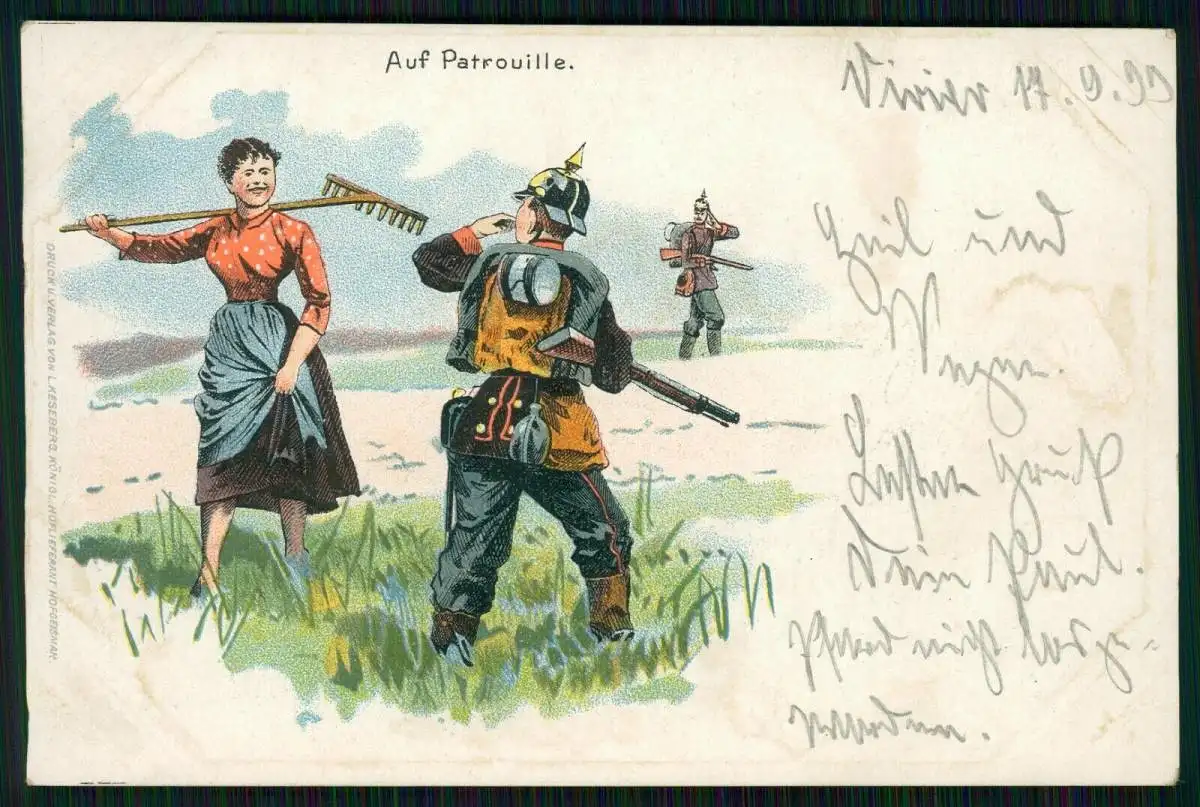 Auf Patrouille.
DRUCK U. VERLAG VON L. KESEBERG, KÖNIGL. HOFLIEFERANT HOFGEISMAR
17. 9.
Heil und
Besten Gruß
Dein Paul.
Pferd nicht los ge-
worden.